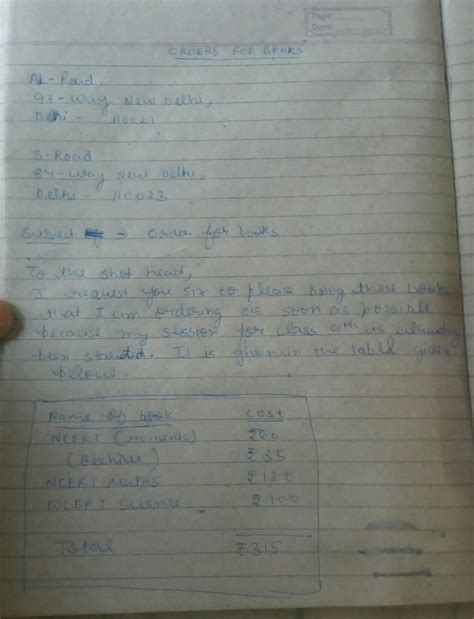 Page:
Date:
ORDERS FOR BOOKS
AK-Road,
97-Way New Delhi,
Delhi - 110021
S-Road
84-Way New Delhi,
Delhi - 110023
Subject => Order for books
To the shok head,
I request you sir to please bring these books
that I am ordering as soon as possible
because my session for class 9th is already
been started. It is given in the table given
below -
Name of book Cost
NCERT (Moments) ₹60
(Beehive) ₹35
NCERT Maths ₹120
NCERT Science ₹100
Total ₹315